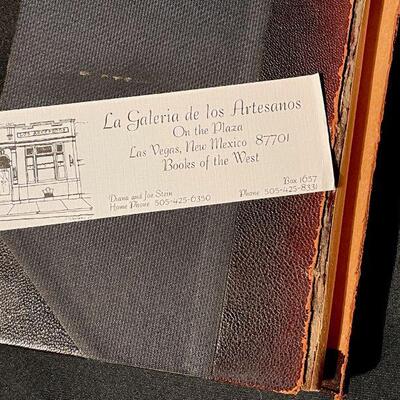 La Galeria de los Artesanos
On the Plaza
Las Vegas, New Mexico 87701
Books of the West
Box 1657
Diana and Joe Stein
Home Phone 505-425-6350
Phone 505-425-8331